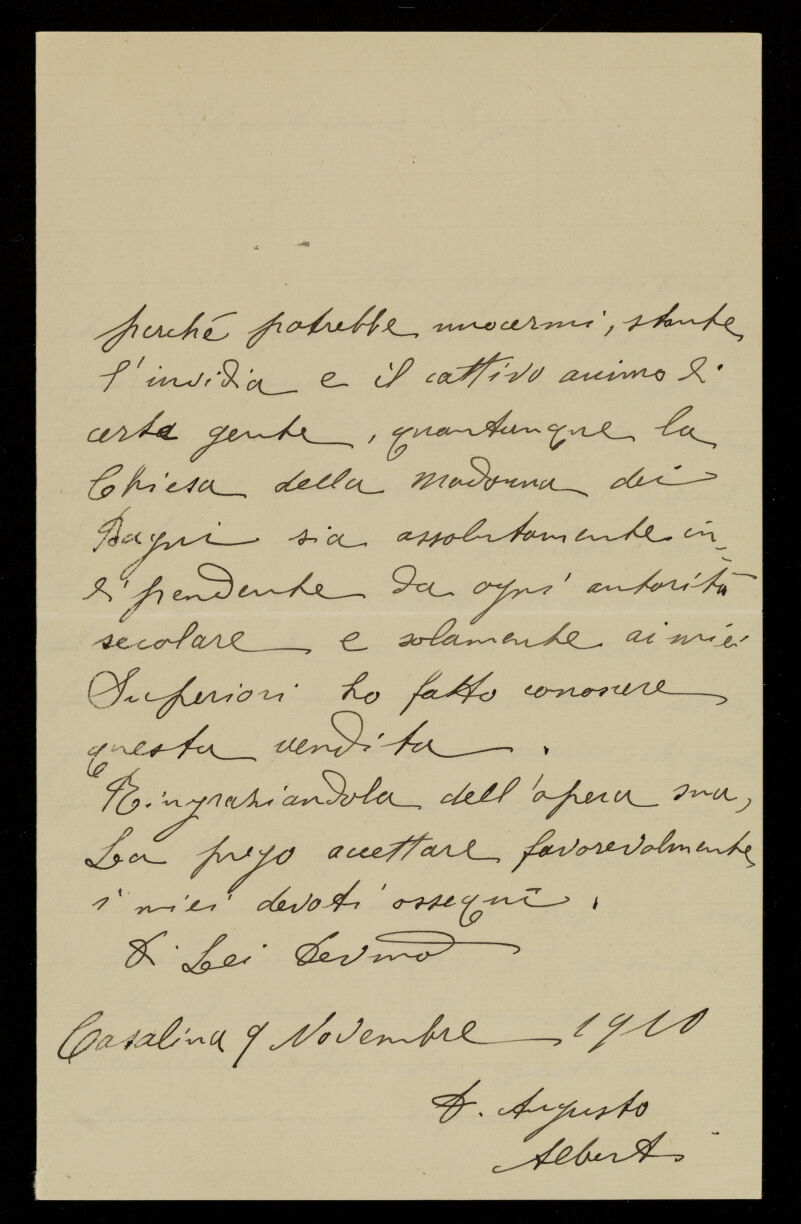 perché potrebbe nuocermi, stante
l'invidia e il cattivo animo di
certa gente, quantunque la
Chiesa della Madonna dei
Bagni sia assolutamente in-
dipendente da ogni autorità
secolare e solamente ai miei
Superiori ho fatto conoscere
questa vendita.
Ringraziandola dell'opera sua,
La prego accettare favorevolmente
i miei devoti ossequi.
Di Lei Devmo
Casalina 9 Novembre 1910
D. Augusto
Alberti